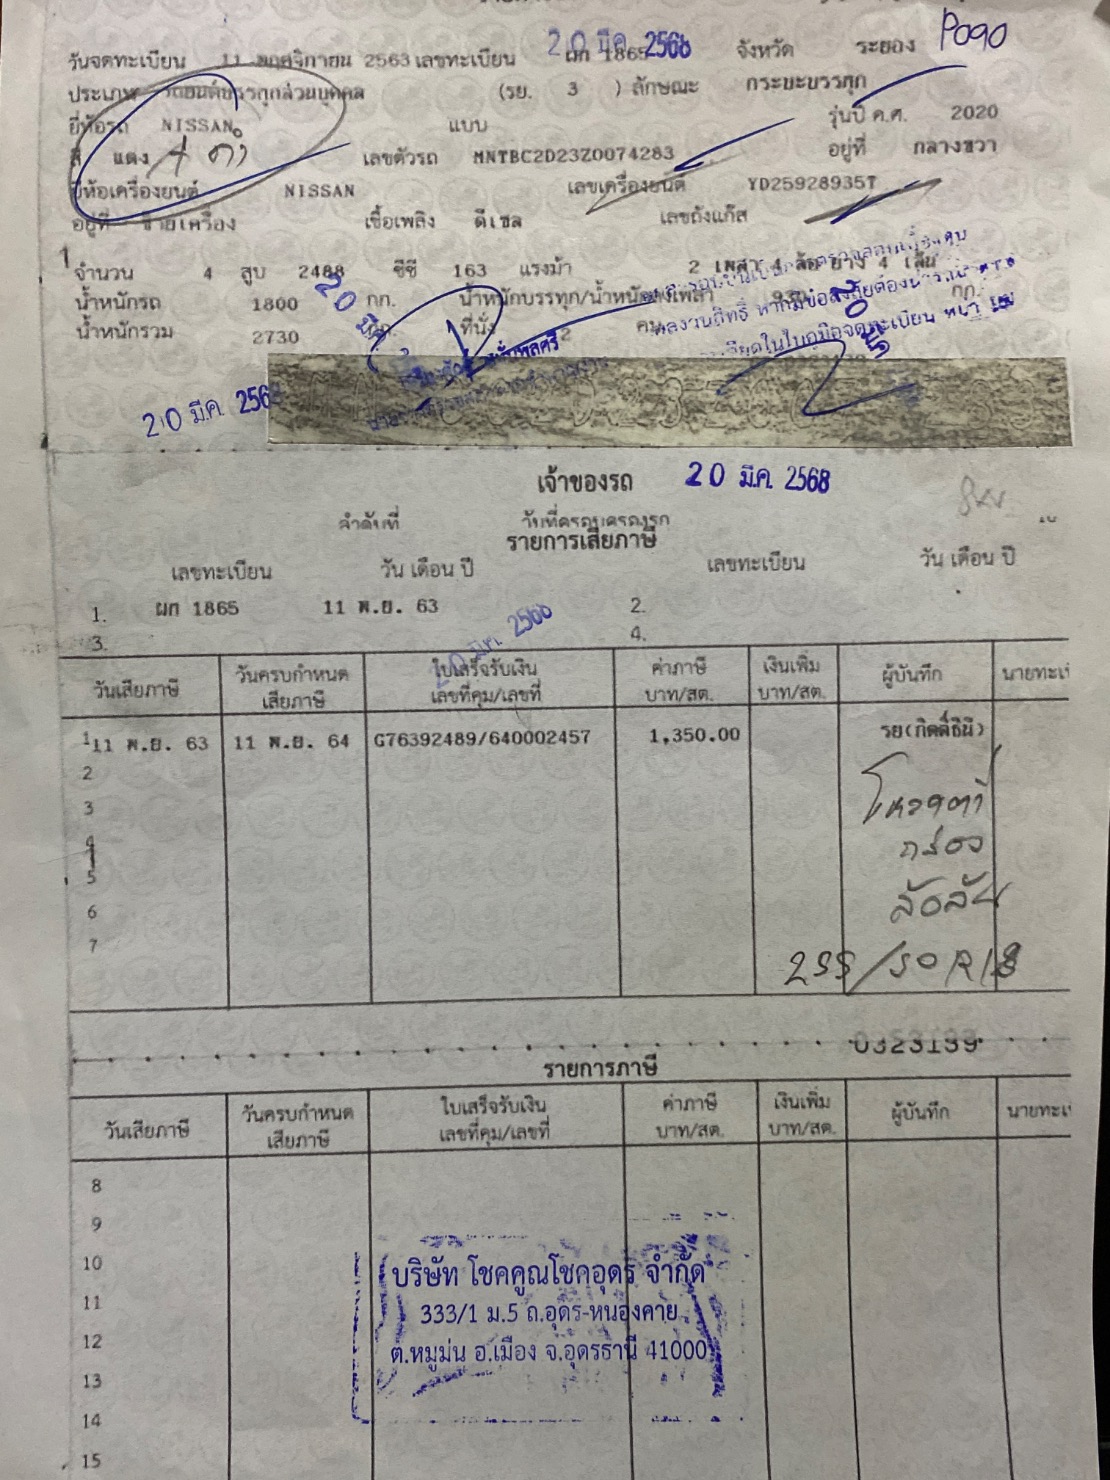 P090
วันจดทะเบียน 11 พฤศจิกายน 2563 เลขทะเบียน ผก 1865 จังหวัด ระยอง
20 มี.ค. 2568
ประเภท รถยนต์บรรทุกส่วนบุคคล (รย. 3 ) ลักษณะ กระบะบรรทุก
ยี่ห้อรถ NISSAN แบบ รุ่นปี ค.ศ. 2020
สี แดง ดำ เลขตัวรถ MNTBC2D23Z0074283 อยู่ที่ กลางขวา
ยี่ห้อเครื่องยนต์ NISSAN เลขเครื่องยนต์ YD25928935T
อยู่ที่ ซ้ายเครื่อง เชื้อเพลิง ดีเซล เลขถังแก๊ส
จำนวน 4 สูบ 2488 ซีซี 163 แรงม้า 2 เพลา 4 ล้อ ยาง 4 เส้น
น้ำหนักรถ 1800 กก. น้ำหนักบรรทุก/น้ำหนักลงเพลา กก.
น้ำหนักรวม 2730 กก. ที่นั่ง 2 คน
20 มี.ค. 2568
เจ้าของรถ 20 มี.ค. 2568
ลำดับที่ วันที่ครอบครองรถ
รายการเสียภาษี
เลขทะเบียน วัน เดือน ปี เลขทะเบียน วัน เดือน ปี
1. ผก 1865 11 พ.ย. 63 2.
3. 4.
20 มี.ค. 2568
วันเสียภาษี วันครบกำหนดเสียภาษี ใบเสร็จรับเงิน เลขที่คุม/เลขที่ ค่าภาษี บาท/สต. เงินเพิ่ม บาท/สต. ผู้บันทึก นายทะเ
1 11 พ.ย. 63 11 พ.ย. 64 G76392489/640002457 1,350.00 รย(กิตติ์ธินี)
2
3 โหลดต่ำ
4 กล่อง
5
6 ล้อลัน
7 255/50R18
0323199
รายการภาษี
วันเสียภาษี วันครบกำหนดเสียภาษี ใบเสร็จรับเงิน เลขที่คุม/เลขที่ ค่าภาษี บาท/สต. เงินเพิ่ม บาท/สต. ผู้บันทึก นายทะเ
8
9
10 บริษัท โชคคูณโชคอุดร จำกัด
11 333/1 ม.5 ถ.อุดร-หนองคาย
12 ต.หมูม่น อ.เมือง จ.อุดรธานี 41000
13
14
15